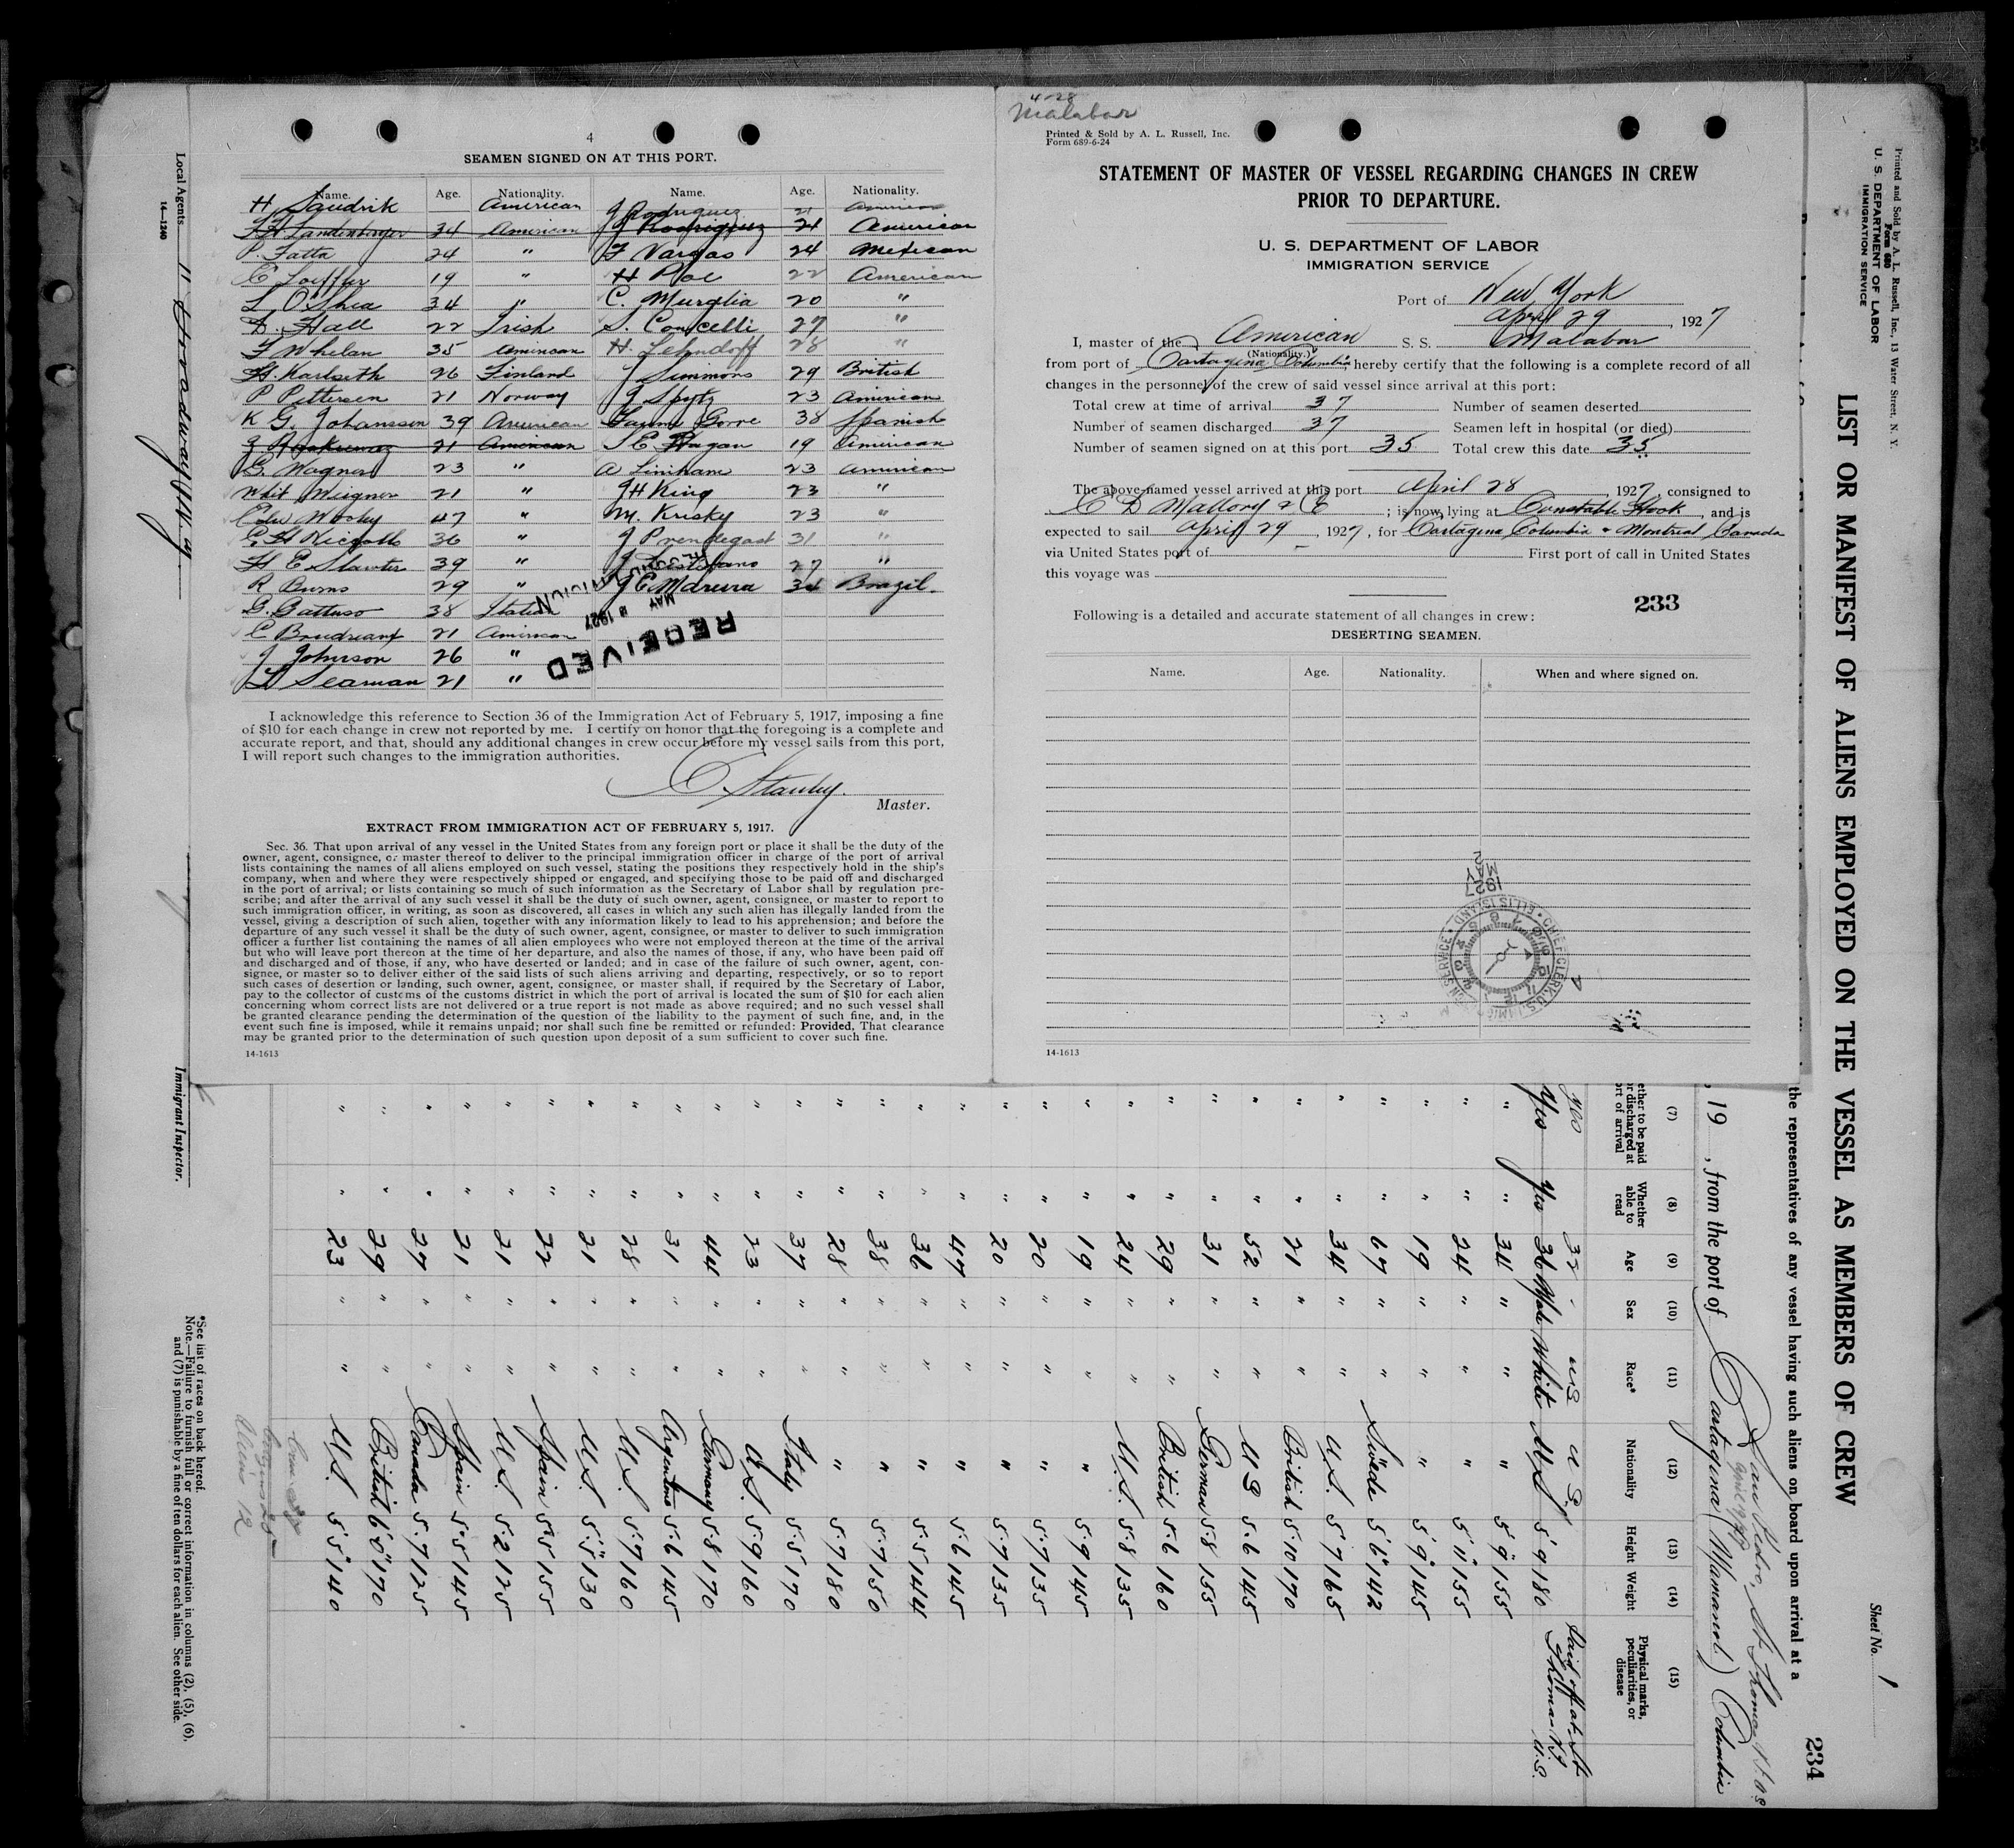 4
SEAMEN SIGNED ON AT THIS PORT.
Name. Age. Nationality. Name. Age. Nationality.
H. Saudrik American J Rodriguez 21 American
F H Landenberger 34 American J J Rodriguez 21 American
P. Fatta 24 " F Vargas 24 Mexican
C Loeffler 19 " H Poe 22 American
L O'Shea 34 " C. Murglia 20 "
D. Hall 22 Irish S. Concelli 27 "
F Whelan 35 American H. Lehndoff 28 "
H. Karlseth 26 Finland J Simmons 29 British
P Pettersen 21 Norway J Spytz 23 American
K G. Johanssen 39 American Gorre 38 Spanish
21 American J E Hogan 19 American
G. Wagner 23 " A Liniham 23 American
Whit Weigner 21 " J H King 23 "
Edw Wooley 47 " M. Krisky 23 "
36 " J Prendegast 31 "
H E Slawter 39 " J 27 "
R Burns 29 " J E Moreira 34 Brazil.
G. Gattuso 38 Italian
C Boudreaux 21 American
J Johnson 26 "
L Seaman 21 "
RECEIVED
MAY 3 1927
I acknowledge this reference to Section 36 of the Immigration Act of February 5, 1917, imposing a fine
of $10 for each change in crew not reported by me. I certify on honor that the foregoing is a complete and
accurate report, and that, should any additional changes in crew occur before my vessel sails from this port,
I will report such changes to the immigration authorities.
C. Stanley.
Master.
EXTRACT FROM IMMIGRATION ACT OF FEBRUARY 5, 1917.
Sec. 36. That upon arrival of any vessel in the United States from any foreign port or place it shall be the duty of the
owner, agent, consignee, or master thereof to deliver to the principal immigration officer in charge of the port of arrival
lists containing the names of all aliens employed on such vessel, stating the positions they respectively hold in the ship's
company, when and where they were respectively shipped or engaged, and specifying those to be paid off and discharged
in the port of arrival; or lists containing so much of such information as the Secretary of Labor shall by regulation pre-
scribe; and after the arrival of any such vessel it shall be the duty of such owner, agent, consignee, or master to report to
such immigration officer, in writing, as soon as discovered, all cases in which any such alien has illegally landed from the
vessel, giving a description of such alien, together with any information likely to lead to his apprehension; and before the
departure of any such vessel it shall be the duty of such owner, agent, consignee, or master to deliver to such immigration
officer a further list containing the names of all alien employees who were not employed thereon at the time of the arrival
but who will leave port thereon at the time of her departure, and also the names of those, if any, who have been paid off
and discharged and of those, if any, who have deserted or landed; and in case of the failure of such owner, agent, con-
signee, or master so to deliver either of the said lists of such aliens arriving and departing, respectively, or so to report
such cases of desertion or landing, such owner, agent, consignee, or master shall, if required by the Secretary of Labor,
pay to the collector of customs of the customs district in which the port of arrival is located the sum of $10 for each alien
concerning whom correct lists are not delivered or a true report is not made as above required; and no such vessel shall
be granted clearance pending the determination of the question of the liability to the payment of such fine, and, in the
event such fine is imposed, while it remains unpaid; nor shall such fine be remitted or refunded: Provided, That clearance
may be granted prior to the determination of such question upon deposit of a sum sufficient to cover such fine.
14-1613
4-28
Malabar
Printed & Sold by A. L. Russell, Inc.
Form 689-6-24
STATEMENT OF MASTER OF VESSEL REGARDING CHANGES IN CREW
PRIOR TO DEPARTURE.
U. S. DEPARTMENT OF LABOR
IMMIGRATION SERVICE
Port of New York
April 29, 1927
I, master of the American S. S. Malabar
(Nationality.)
from port of Cartagena Columbia, hereby certify that the following is a complete record of all
changes in the personnel of the crew of said vessel since arrival at this port:
Total crew at time of arrival 37 Number of seamen deserted
Number of seamen discharged 37 Seamen left in hospital (or died)
Number of seamen signed on at this port 35 Total crew this date 35
The above-named vessel arrived at this port April 28, 1927, consigned to
C D Mallory & C; is now lying at Constable Hook, and is
expected to sail April 29, 1927, for Cartagena Columbia & Montreal Canada
via United States port of - First port of call in United States
this voyage was
233
Following is a detailed and accurate statement of all changes in crew:
DESERTING SEAMEN.
Name. Age. Nationality. When and where signed on.
1927
MAY
2
CHIEF CLERK, U.S. IMMIGRATION SERVICE • ELLIS ISLAND
14-1613
Printed and Sold by A. L. Russell, Inc., 13 Water Street, N. Y.
Form 680
U. S. DEPARTMENT OF LABOR
IMMIGRATION SERVICE
LIST OR MANIFEST OF ALIENS EMPLOYED ON THE VESSEL AS MEMBERS OF CREW
Sheet No. 1
234
the representatives of any vessel having such aliens on board upon arrival at a
San Pedro, St Thomas
, 19 , from the port of Cartagena (Mamanol) Columbia
(7) (8) (9) (10) (11) (12) (13) (14) (15)
Whether able to read
Age
Sex
Race*
Nationality
Height
Weight
Physical marks, peculiarities, or disease
yes 32 U S. Paid off at St Thomas V.I. U.S.
Yes Yes 36 Male White U.S. 5 9 180
" " 34 " " " 5 9 155
" " 24 " " " 5 11 155
" " 19 " " " 5 9 145
" " 67 " " Swede 5 6 142
" " 34 " " U.S. 5 7 165
" " 21 " " British 5.10 170
" " 52 " " U S 5.6 145
" " 31 " " German 5.8 155
" " 29 " " British 5.6 160
" " 24 " " U.S. 5.8 135
" " 19 " " " 5.9 145
" " 20 " " " 5.7 135
" " 20 " " " 5.7 135
" " 47 " " " 5.6 145
" " 36 " " " 5.5 144
" " 38 " " " 5.7 150
" " 28 " " " 5.7 180
" " 37 " " Italy 5.5 170
" " 23 " " U.S. 5.9 160
" " 44 " " Germany 5.8 170
" " 31 " " Argentine 5.6 145
" " 28 " " U.S. 5.7 160
" " 21 " " U.S. 5.5 130
" " 22 " " Spain 5.5 155
" " 21 " " U.S. 5.2 125
" " 21 " " Spain 5.5 145
" " 27 " " Canada 5.7 125
" " 29 " " British 6.0 170
" " 23 " " U.S. 5.5 140
Aliens 12
*See list of races on back hereof.
Note.—Failure to furnish full or correct information in columns (2), (5), (6),
and (7) is punishable by a fine of ten dollars for each alien. See other side.
Local Agents 11 Broadway N.Y.
14—1240
Immigrant Inspector.